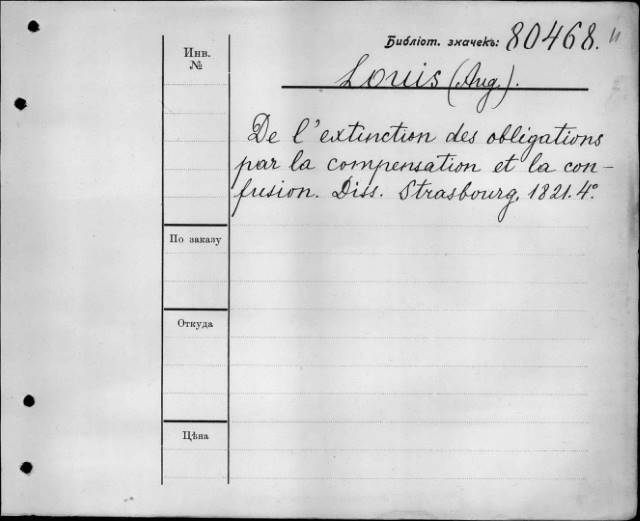 Библіот. значекъ: 80468. "
Инв.
№
Louis (Aug.).
De l'extinction des obligations
par la compensation et la con-
fusion. Diss. Strasbourg, 1821. 4°
По заказу
Откуда
Цѣна